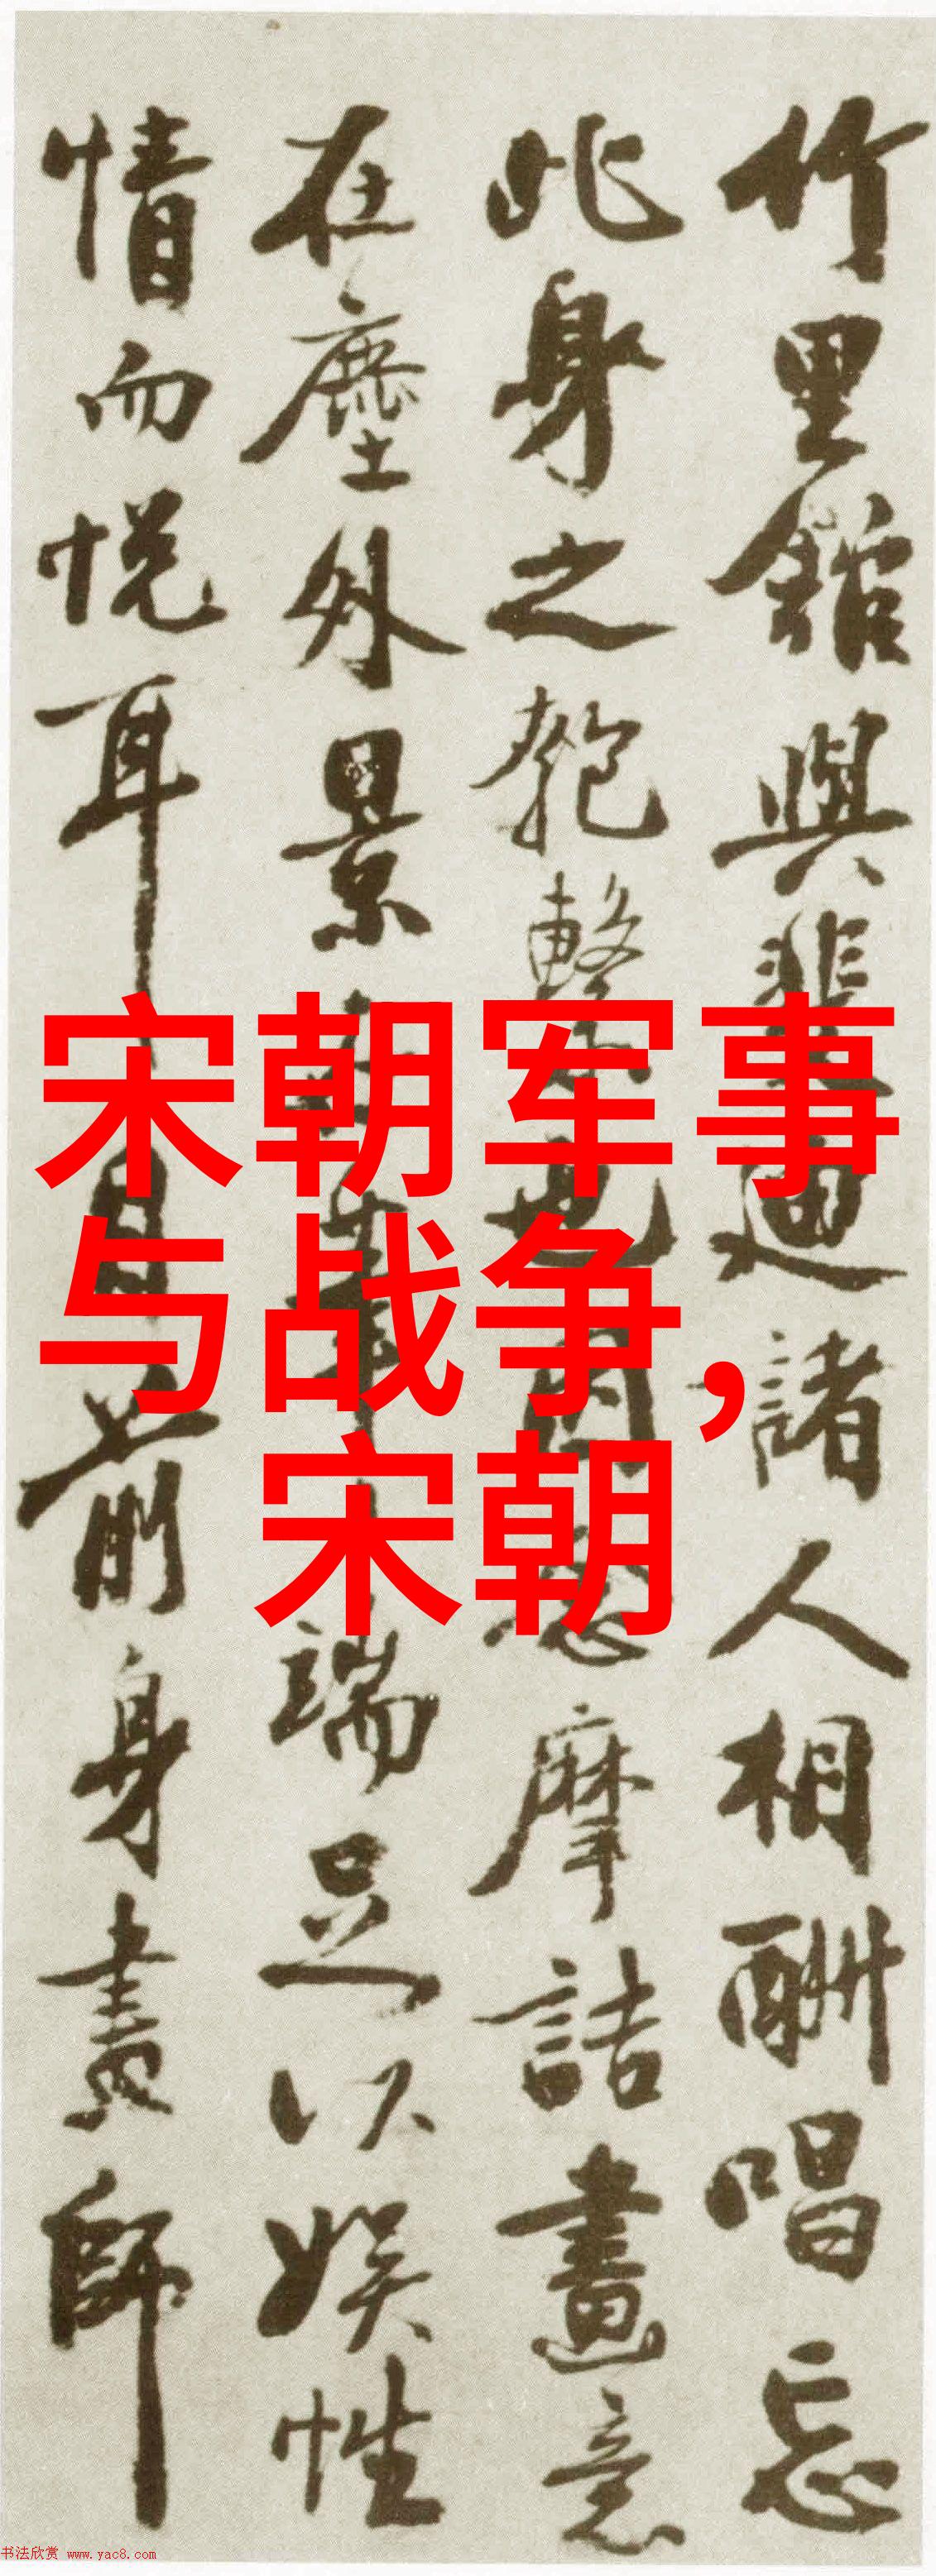 竹里館與裴迪諸人相酬唱忘
此身之匏繫也因念摩詰畫意
在塵外景在筆端足以娛性
情而悅耳目前身畫師
宋朝军事
与战争，
宋朝
书法欣赏 www.yac8.com